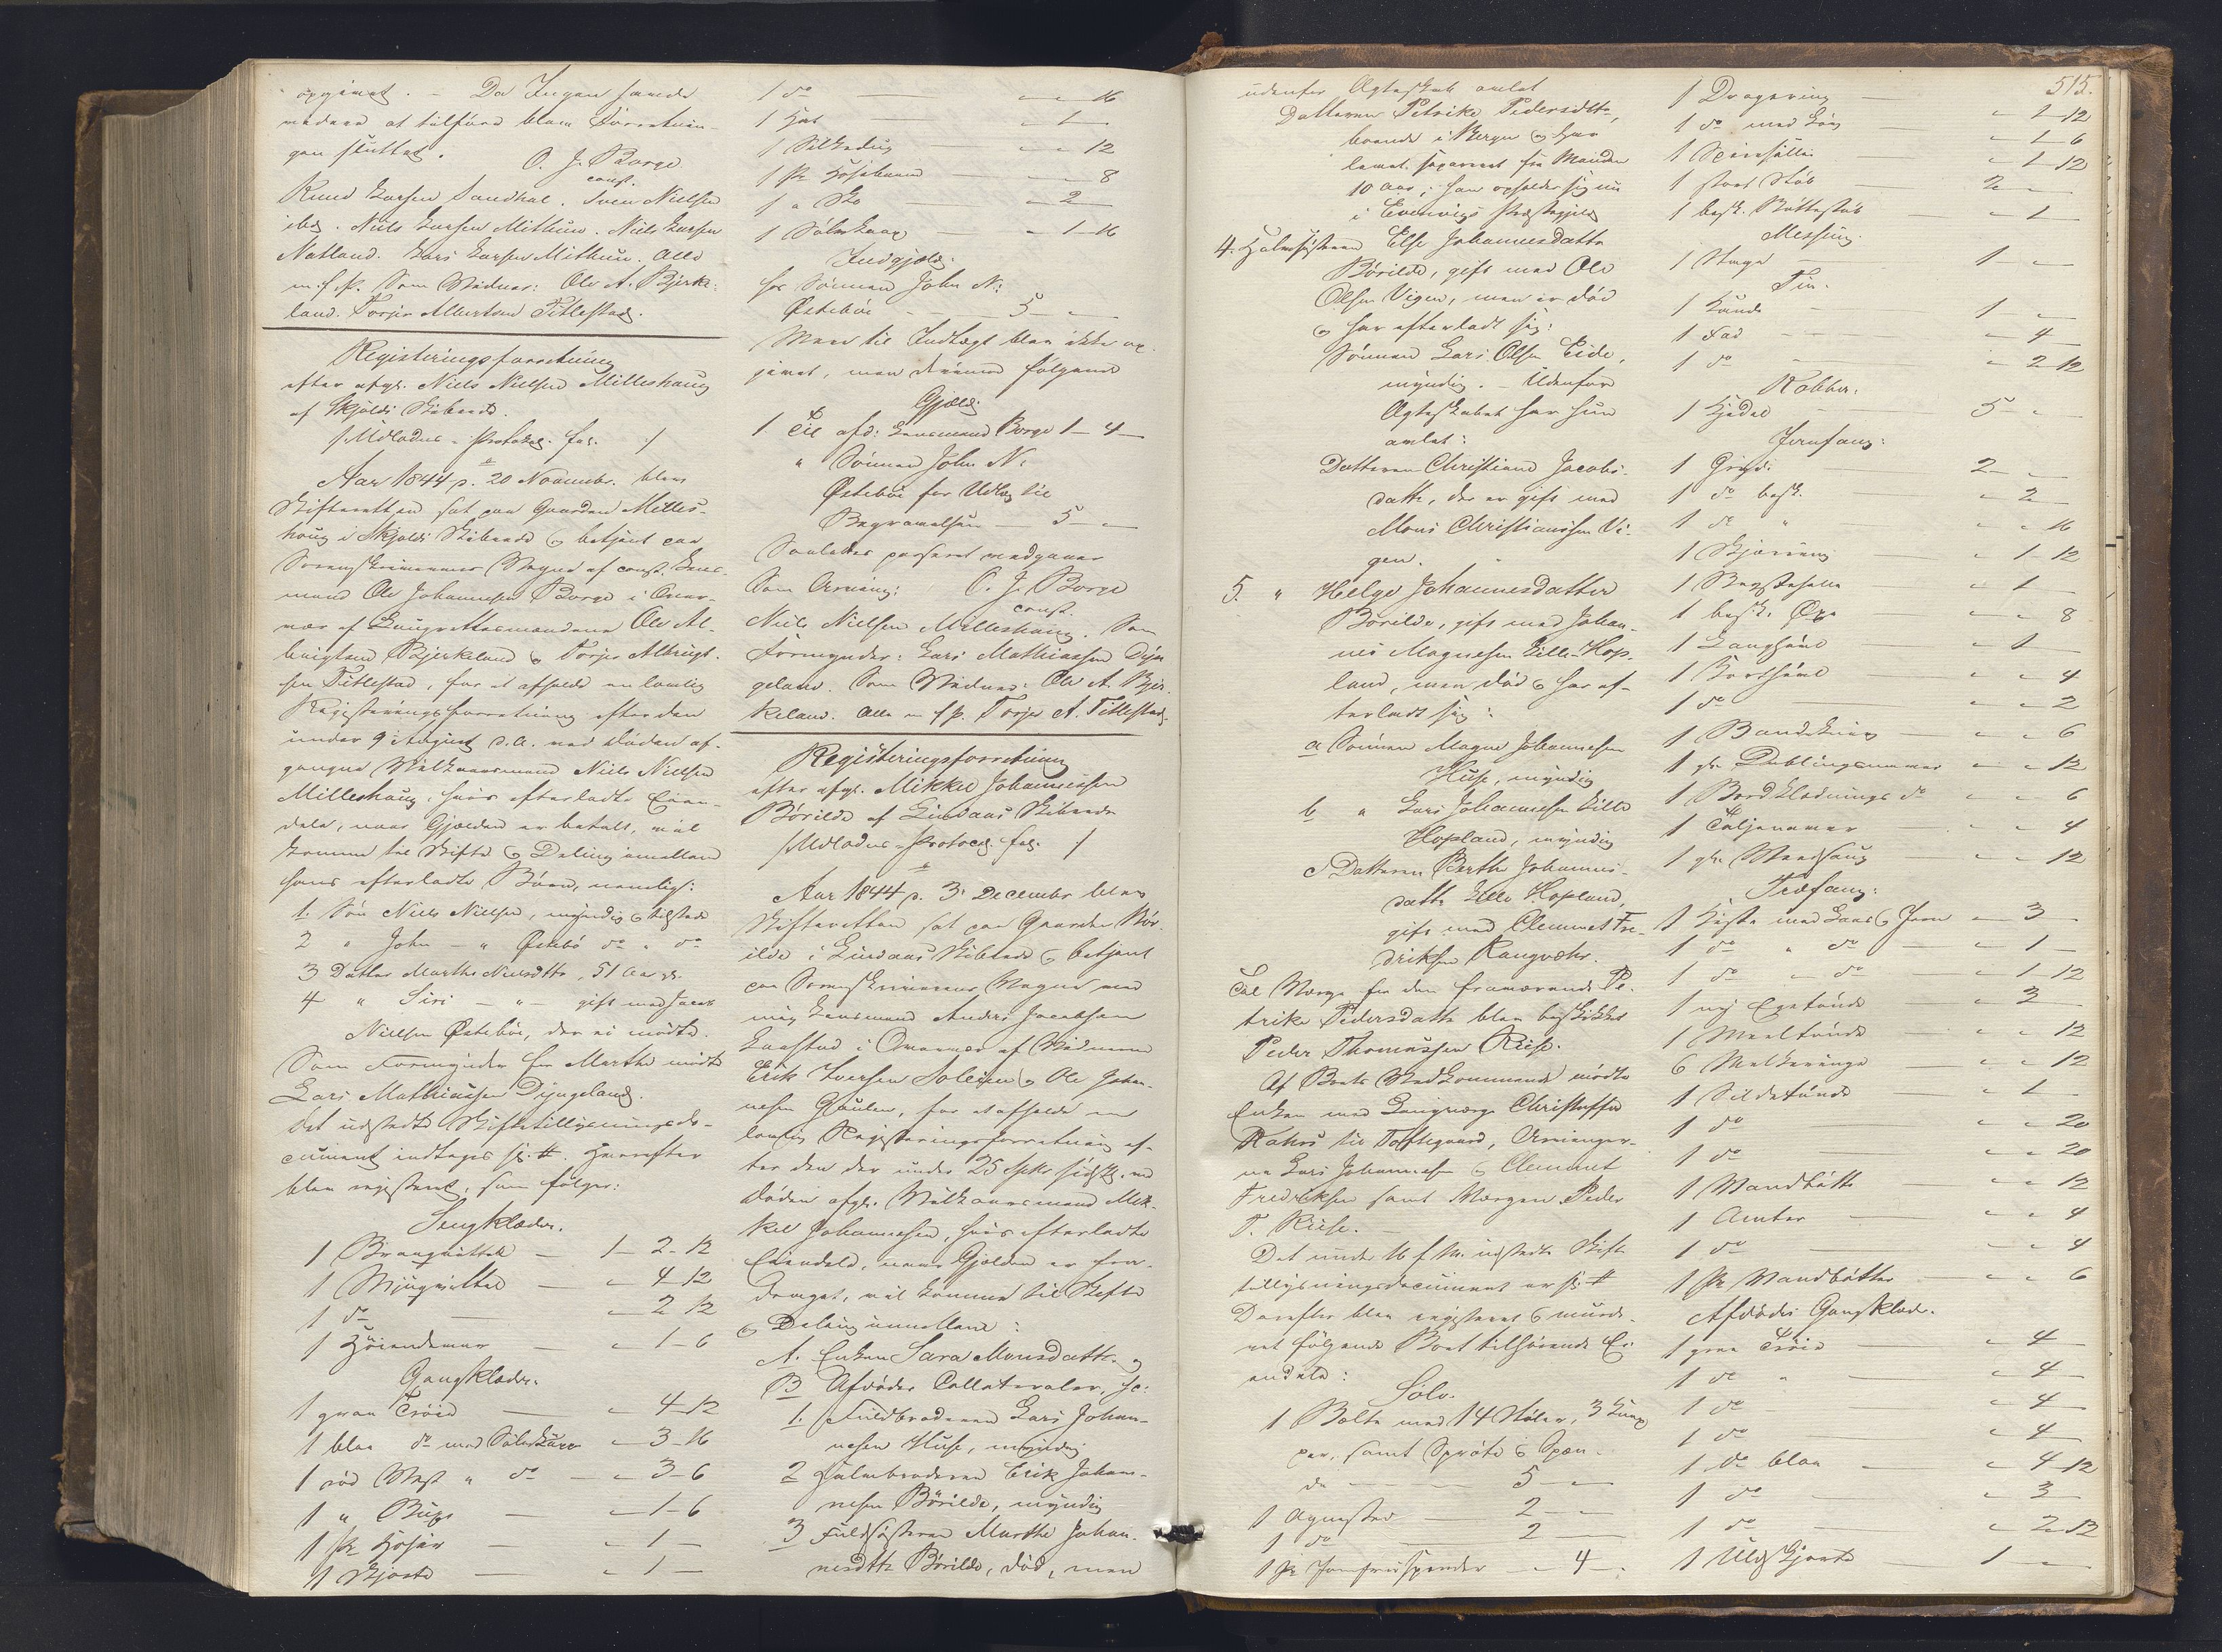 opgivet. – Da Ingen havde
videre at tilføre blev Forretnin-
gen sluttet. O. J. Borge
const.
Knud Larsen Sandhal. Sven Nielsen
ibd. Niels Larsen Mithun. Niels Larsen
Natland. Lars Larsen Mithun. Alle
m. f. P. Som Vidner: Ole A. Bjerke-
land. Torjer Albertsen Titlestad.
Registeringsforretning
efter afg. Niels Nielsen Milleshaug
af Skjolds Skibrede.
/: Udlodn. Protokol. fol. :/
Aar 1844 d. 20 Novembr. blev
Skifteretten sat paa Gaarden Milles-
haug i Skjolds Skibrede og betjent paa
Sorenskriverens Vegne af const. Lens-
mand Ole Johannesen Borge i Over-
vær af Laugrettesmændene Ole Al-
brigtsen Bjerkeland & Torjer Albrigt-
sen Titlestad, for at afholde en lovlig
Registeringsforretning efter den
under 9 August d. A. ved Døden af-
gangne Vilkaarsmand Niels Nielsen
Milleshaug, hvis efterladte Eien-
dele, naar Gjælden er betalt, vil
komme til Skifte & Deling imellem
hans efterladte Børn, nemlig:
1. Søn Niels Nielsen, myndig & tilstede
2 " John – " Østebø do " do
3 Datter Marthe Nielsdttr, 51 Aar gl.
4 " Siri – " – gift med Jacob
Nielsen Østebøe, der ei mødte.
Som Formynder for Marthe mødte
Lars Mathiassen Dyngeland.
Det udstedte Skiftetillysningsdo-
cument indtages s: #. Herefter
blev registeret, som følger:
Sengklæder.
1 Brangvittel – 1 – 2 – 12
1 Miugvittel – " 4 – 12
1 do – " 2 – 12
1 Høiendevar – " 1 – 6
Gangklæder.
1 graa Trøie – " 4 – 12
1 blaa do med Sølvkuer " 3 – 16
1 rød Vest " do – " 3 – 6
1 " Buxe – " 1 – 6
1 Pr Hoser – " 1 –
1 Skjorte – " 1 –
1 do – " " 16
1 Hat – " 1 –
1 Silkedug – " " 12
1 Pr Hosebaand – " " 8
1 " Sko – " 2 –
1 Sølvknap – " 1 – 16
Indgjæld.
hos Sønnen John N:
Østebøe – 5 – "
Mere til Indtægt blev ikke op-
givet, men derimod følgende
Gjæld:
1 Til afd: Lensmand Borge 1 – 4 –
" Sønnen John N:
Østebøe for Udlæg til
Begravelsen – 5 – "
Saaledes passeret vedgaaes
Som Arving: O. J. Borge
const.
Niels Nielsen Milleshaug. Som
Formynder: Lars Mathiassen Dyn-
geland. Som Vidner: Ole A. Bjer-
keland. Alle m f P. Torjer A. Titlestad.
Registeringsforretning
efter afg. Mikkel Johannessen
Børilde af Lindaas Skibrede
/: Udlodn. Protocol fol. :/
Aar 1844 d. 3. December blev
Skifteretten sat paa Gaarden Bør-
ilde i Lindaas Skibrede & betjent
paa Sorenskriverens Vegne ved
mig Lensmand Anders Jacobsen
Kaastad i Overvær af Vidnerne
Erik Iversen Soleim & Ole Johan-
nesen Gaulen, for at afholde en
lovlig Registeringsforretning ef-
ter den der under 25 Septr sidstl. ved
Døden afg. Vilkaarsmand Mik-
kel Johannesen, hvis efterladte
Eiendele, naar Gjælden er fra-
draget, vil komme til Skifte
& Deling imellem:
A. Enken Sara Monsdatter og
B Afdødes Collateraler, sc:
1. Fuldbroderen Lars Johan-
nesen Huse, myndig
2 Halvbroderen Erik Johan-
nesen Børilde, myndig
3 Fuldsøsteren Marthe Johan-
nesdttr Børilde, død, men
515.
udenfor Ægteskab avlet
Datteren Petrike Pedersdttr,
boende i Bergen & har
levet separeret fra Manden
10 Aar, han opholder sig nu
i Evenvigs Præstegjeld
4. Halvsøsteren Else Johannesdatter
Børilde, gift med Ole
Olsen Vigen, men er død
& har efterladt sig:
Sønnen Lars Olsen Eide,
myndig. – Udenfor
Ægteskabet har hun
avlet:
Datteren Christiane Jacobs-
datter, der er gift med
Mons Christiansen Vi-
gen.
5. " Helge Johannesdatter
Børilde, gift med Johan-
nes Magnesen Lille-Hop-
land, men død & har ef-
terladt sig:
a Sønnen Magne Johannesen
Huse, myndig
b " Lars Johannesen Lille
Hopland, myndig
c Datteren Berthe Johannes-
datter Lille Hopland,
gift med Clemmet Fre-
driksen Kangvohr.
Til Verge for den fraværende Pe-
trike Pedersdatter blev beskikket
Peder Thomassen Riise.
Af Boets Vedkommende mødte
Enken med Laugverge Christoffer
Rahrs til Toftegaard, Arvinger-
ne Lars Johannesen & Clemmet
Fredriksen samt Vergen Peder
T. Riise.
Det under 16 f. M. udstedte Skifte-
tillysningsdocument er s: #
Derefter blev registeret & vurde-
ret følgende Boet tilhørende Ei-
endele:
Sølv.
1 Belte med 14 Støler, 3 Knap-
per, samt Sprøte & Spæn-
de – 5 – "
1 Agnesten – 2 – "
1 do – 2 –
1 Pr Jomfruspender – " 4 –
1 Dragering – " 1 – 12
1 do med Løv – " 1 – 6
1 Spiresøllie – " 1 – 12
1 stort Støb – 2 – "
1 besk. Bøttestøb – " 1 –
Messing.
1 Stage – 1 – "
Tin.
1 Kande – 1 – "
1 Fad – " 4 –
1 do – " 2 – 12
Kobber.
1 Kjedel – 5 – "
Jernfang:
1 Gryde – 2 – "
1 do besk. – " 2 –
1 do " – " " 16
1 Skjæring – " 1 – 12
1 Bagstehelle – " 1 –
1 besk. Øxe – " " 8
1 Langhøvl – " 1 –
1 Korthøvl – " " 4
1 do – " " 2
1 Bandekniv – " " 6
1 gl. Dublingsnaver – " " 12
1 Bordklædnings do – " " 6
1 Tæljenaver – " " 4
1 gl. Vædsaug – " " 12
Træfang:
1 Kiste med Laas & Jern – " 3 –
1 do " do – " 1 –
1 do " do – " 1 – 12
1 ny Egetønde – " 3 –
1 Meeltønde – " " 12
6 Melkeringe – " " 12
1 Sildetønde – " 1 –
1 do – " " 20
1 do – " " 20
1 Vandbøtte – " " 12
1 Amber – " " 4
1 do – " " 4
1 Pr Vandbøtter – " " 6
Afdødes Gangklæder.
1 graa Trøie – " 4 –
1 do " – " 4 –
1 do – " 4 –
1 do – " 4 –
1 do blaa – " 4 – 12
1 do – " 3 –
1 do – " 2 – 12
1 Uldskjorte – 1 – "